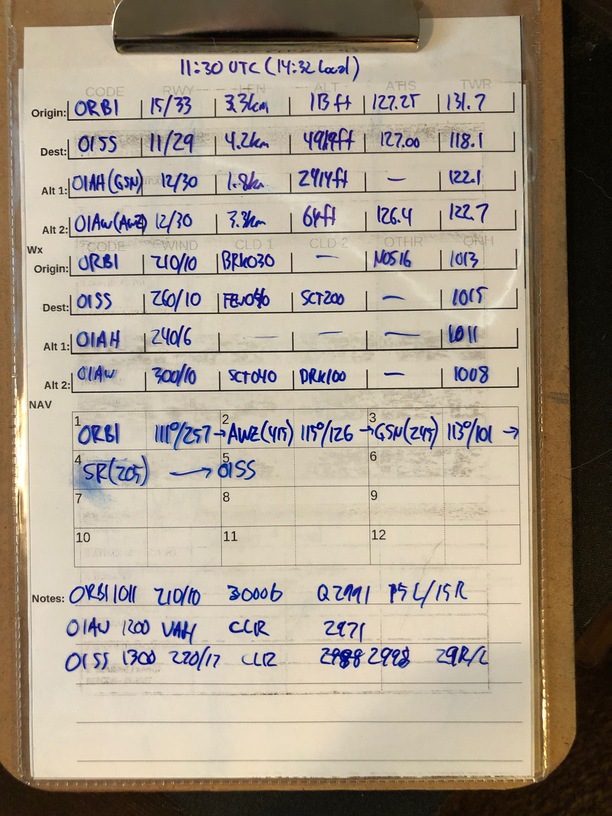 11:30 UTC (14:32 local)
CODE RWY LEN ALT ATIS TWR
Origin: ORBI 15/33 3.3km 113 ft 127.25 131.7
Dest: OISS 11/29 4.2km 4919ft 127.00 118.1
Alt 1: OIAH(GSN) 12/30 1.8km 2414ft — 122.1
Alt 2: OIAW(AWZ) 12/30 3.3km 64ft 126.4 122.7
Wx CODE WIND CLD 1 CLD 2 OTHR QNH
Origin: ORBI 210/10 BRK030 — NOS16 1013
Dest: OISS 260/10 FEW040 SCT200 — 1015
Alt 1: OIAH 240/6 — — — 1011
Alt 2: OIAW 300/10 SCT040 BRK100 — 1008
NAV
1 2 3
ORBI 111°/257 → AWZ(415) 115°/126 → GSN(245) 113°/101 →
4 5 6
SR(205) → OISS
7 8 9
10 11 12
Notes: ORBI 1011 210/10 30006 Q2991 15L/15R
OIAW 1200 VAR CLR 2971
OISS 1300 220/17 CLR 2998 29R/L